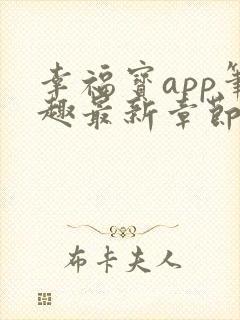 幸福宝app笔
趣最新章节
布卡夫人